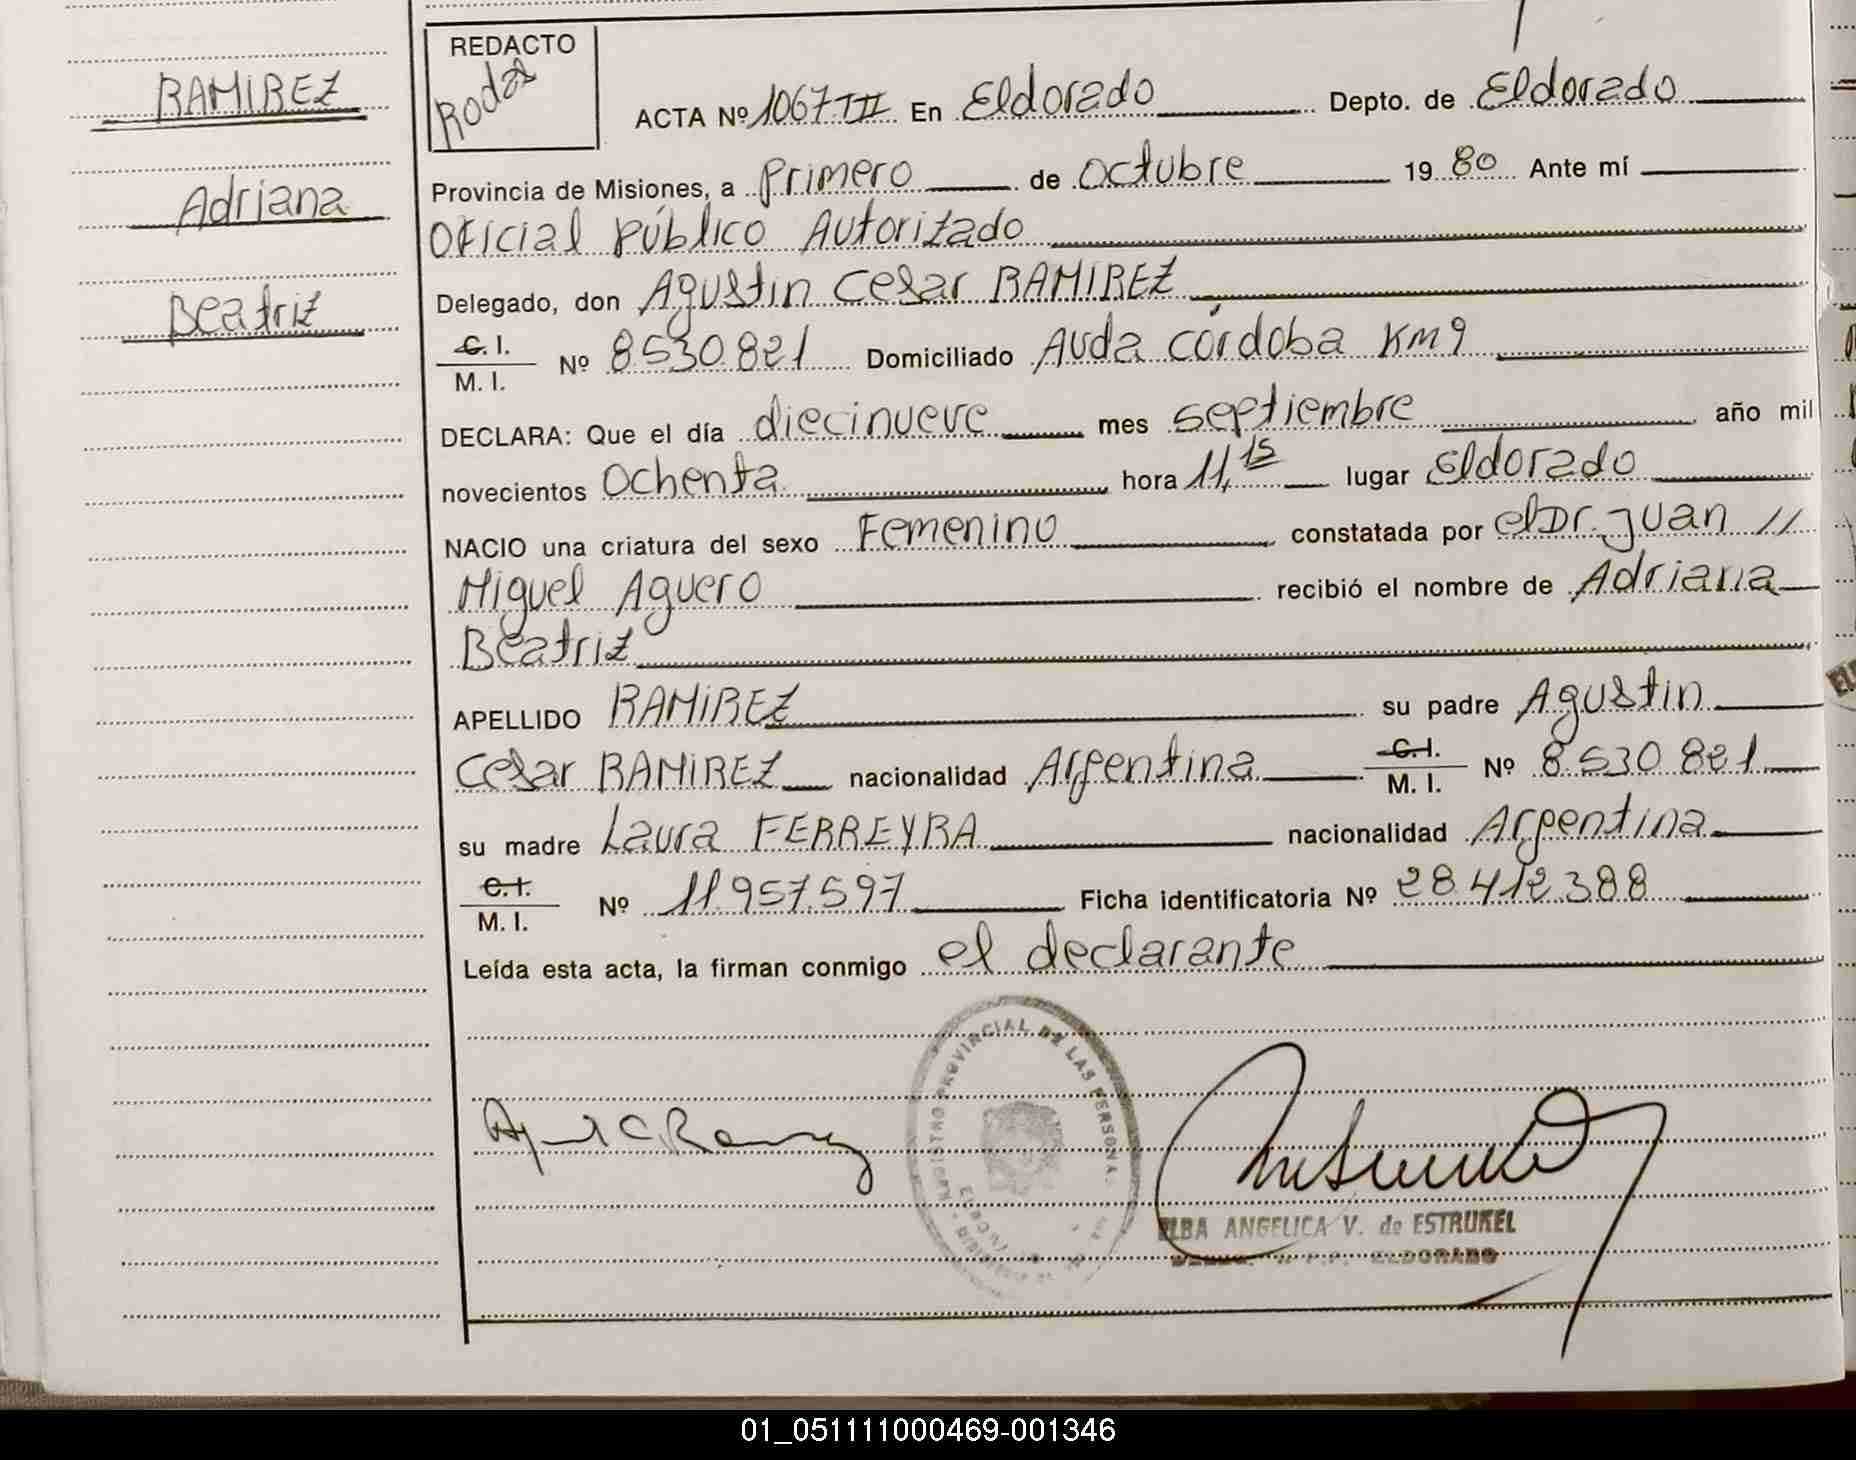 RAMIREZ
Adriana
Beatriz
REDACTO
Rodas
ACTA Nº 1067 TIII En Eldorado Depto. de Eldorado
Provincia de Misiones, a primero de octubre 1980 Ante mí
Oficial Público Autorizado
Delegado, don Agustin Cesar RAMIREZ
C. I.
M. I.
Nº 8.530.821 Domiciliado Avda Córdoba Km 9
DECLARA: Que el día diecinueve mes septiembre año mil
novecientos ochenta hora 11,15 lugar Eldorado
NACIO una criatura del sexo Femenino constatada por el Dr. Juan //
Miguel Aguero recibió el nombre de Adriana
Beatriz
APELLIDO RAMIREZ su padre Agustin
Cesar RAMIREZ nacionalidad Argentina C.I. M. I. Nº 8.530.821
su madre Laura FERREYRA nacionalidad Argentina
C.I.
M. I.
Nº 11.957.597 Ficha identificatoria Nº 28.412.388
Leída esta acta, la firman conmigo el declarante
REGISTRO PROVINCIAL DE LAS PERSONAS
ELBA ANGELICA V. de ESTRUKEL
R.P.P. ELDORADO
01_051111000469-001346